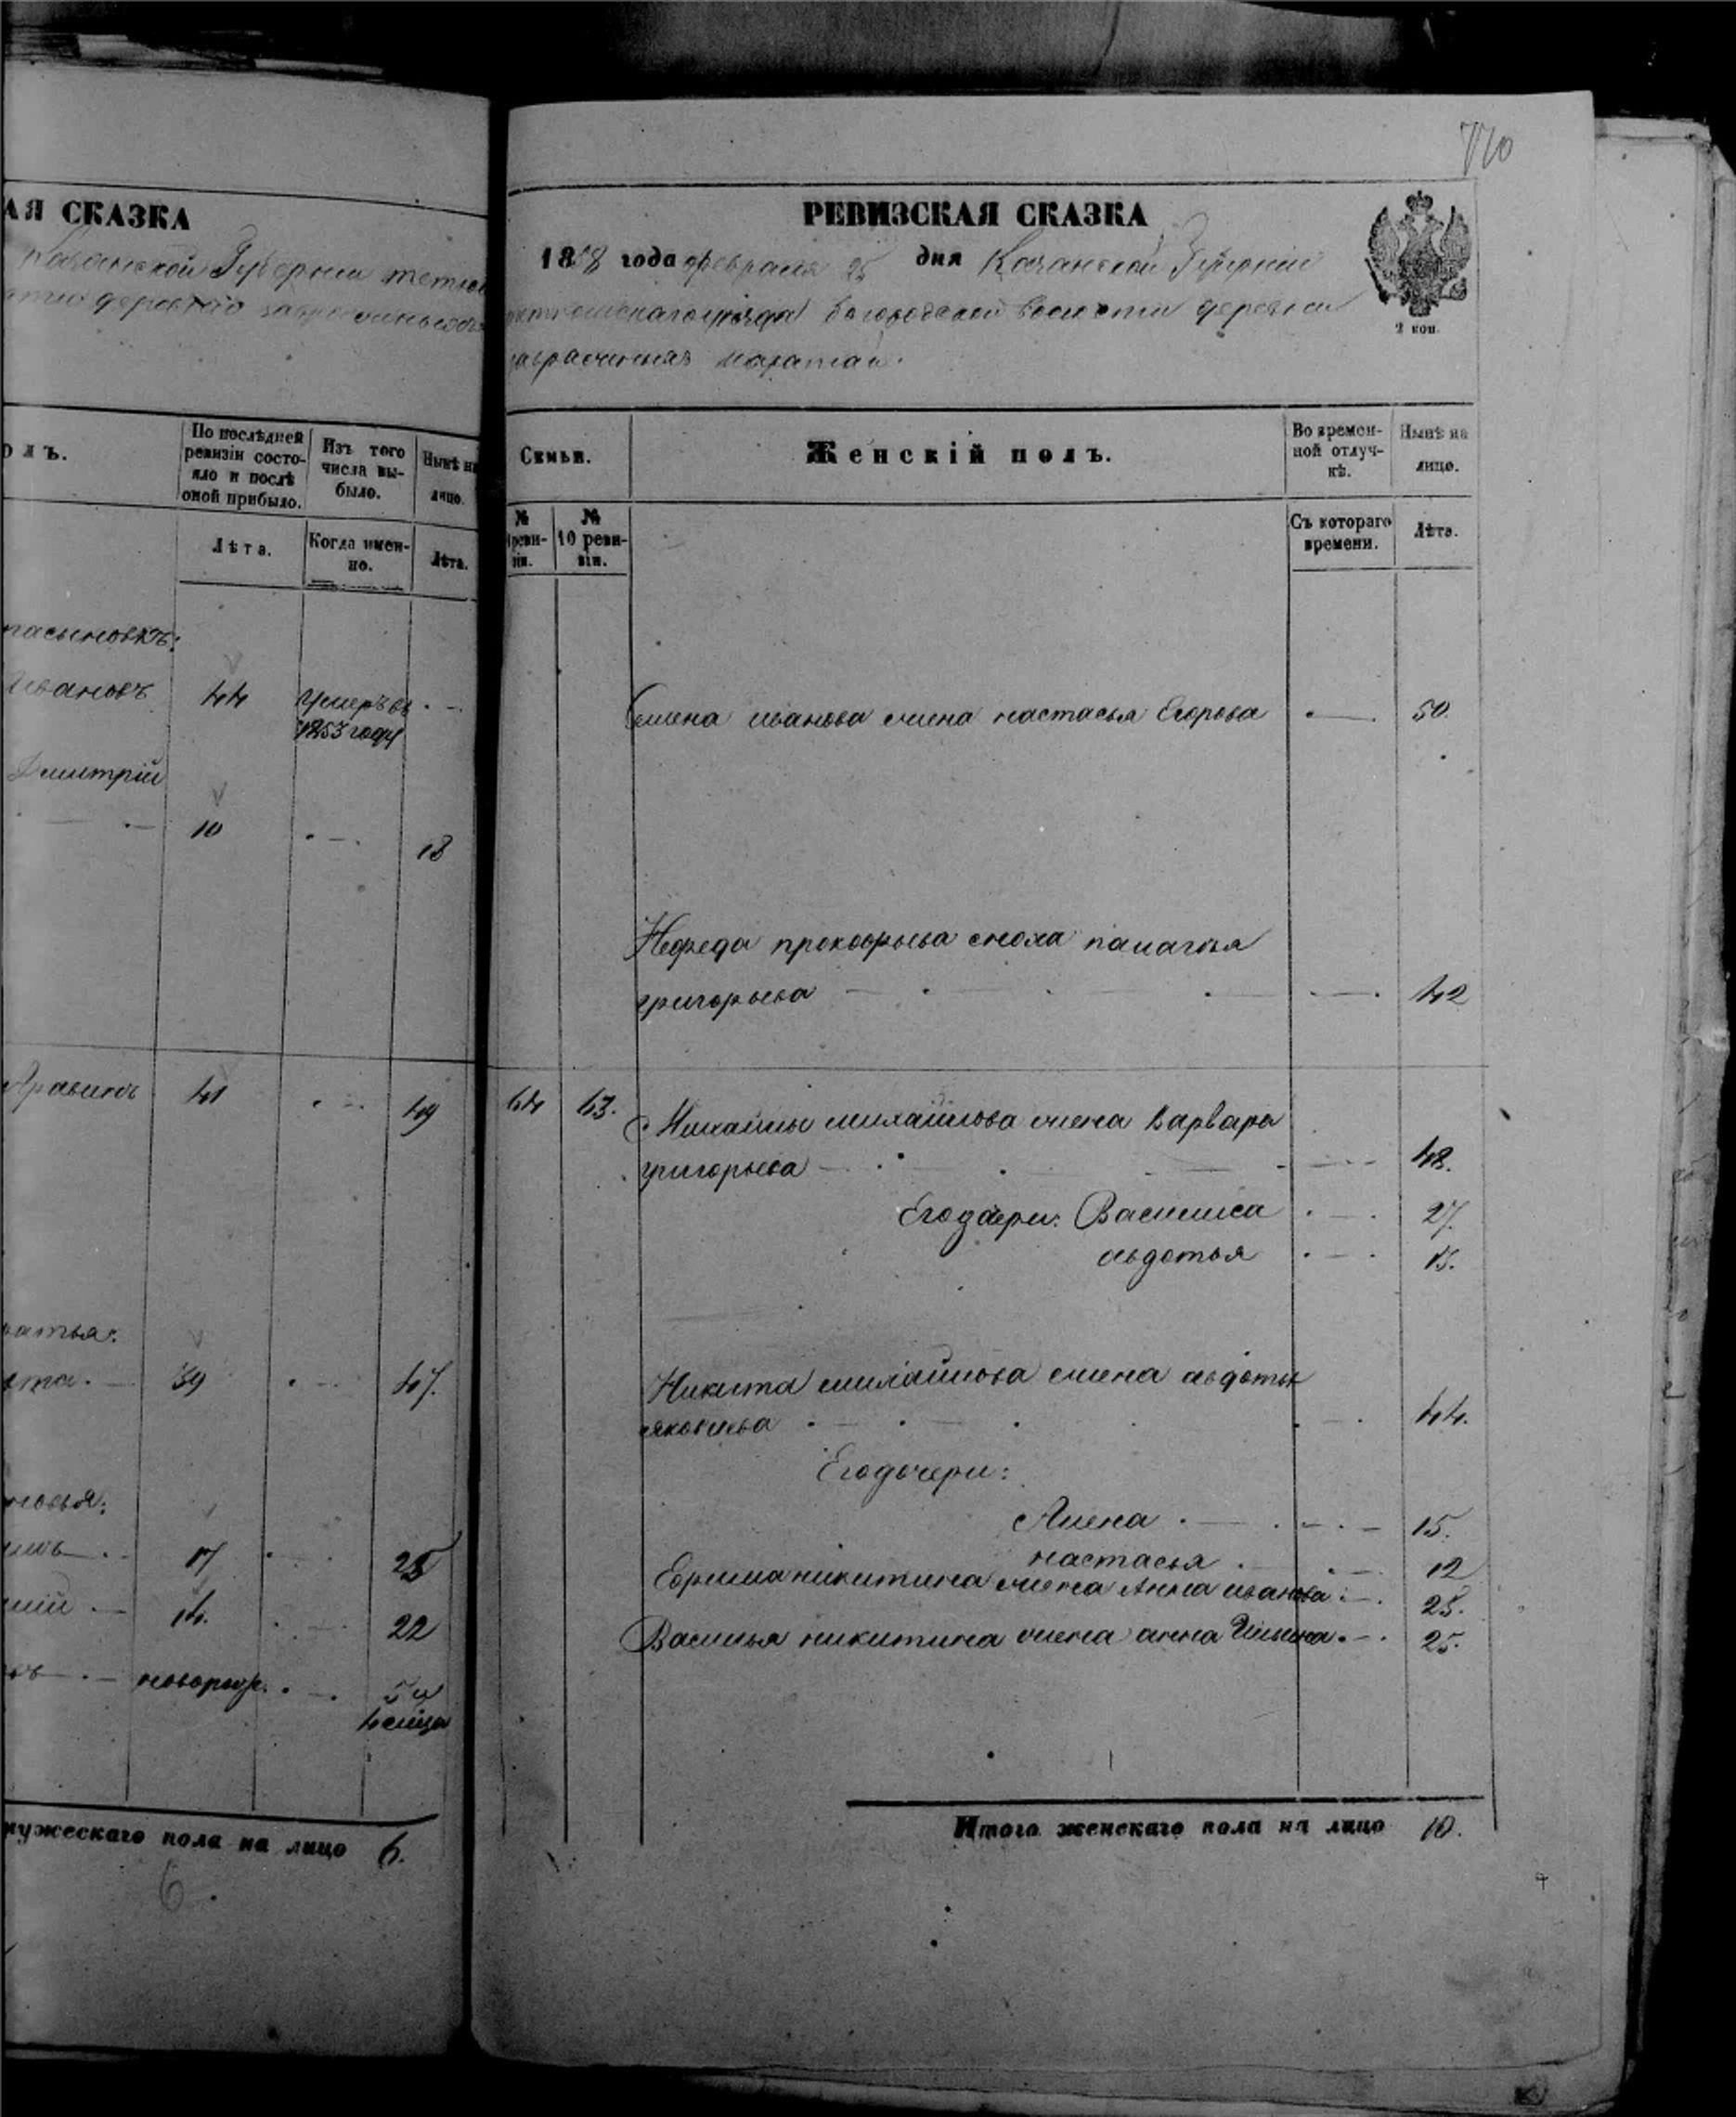 АЯ СКАЗКА
Казанской Губернiи тетю
деревнiо
олъ.
По послѣдней ревизіи состояло и послѣ оной прибыло.
Изъ того числа выбыло.
Нынѣ на лицо.
Лѣта.
Когда именно.
Лѣта.
пасынокъ:
Ивановъ 44 Умеръ въ 1853 году
Дмитрій
10 18
41 49
ратья:
39 47.
новья:
17 25
14. 22
новорож. 5 и
4 мѣца
мужескаго пола на лицо 6.
6.
770
РЕВИЗСКАЯ СКАЗКА
1858 года февраля 25 дня Казанской Губерніи
уѣзда Богородской волости деревни
2 коп.
Семьи.
Женскій полъ.
Во временной отлучкѣ.
Нынѣ на лицо.
№ реви-зіи.
№ 10 реви-зіи.
Съ котораго времени.
Лѣта.
Семена иванова жена настасья Егорова 50.
Нефеда прокофьева сноха палагѣя
григорьева 42
64 63. Михайлы михайлова жена Варвара
григорьева 48.
Его дочери: Василиса 27.
авдотья 13.
Никита михайлова жена авдотья
яковлева 44.
Его дочери:
Алена 15.
настасья 12
Ефрима никитина жена Анна иванова 28.
Василья никитина жена анна Ильина 25.
Итого женскаго пола на лицо 10.